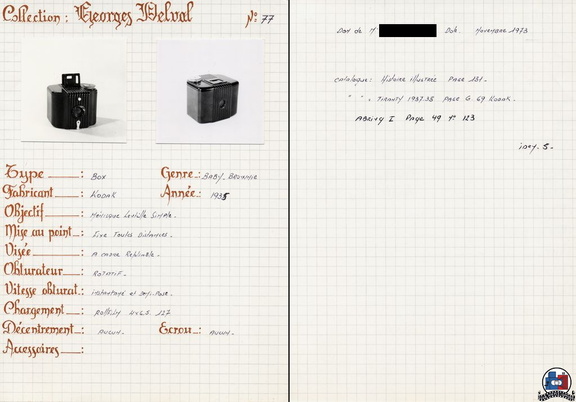 Collection : Georges Delval N°: 77
Type : Box Genre : Baby. Brownie
Fabricant : Kodak Année : 1935
Objectif : Ménisque Lentille Simple.
Mise au point : Fixe Toutes Distances.
Visée : A cadre Repliable.
Obturateur : Rotatif.
Vitesse obturat : instantané et
Chargement : Rollfilm 4x6.5 127
Décentrement : Aucun. Ecrou : Aucun.
Accessoires :
Don de M Dat. Novembre 1973
Catalogue : Histoire Illustrée Page 131.
" " . 1937.38 Page G. 69 Kodak.
Abring I Page 49 N° 123